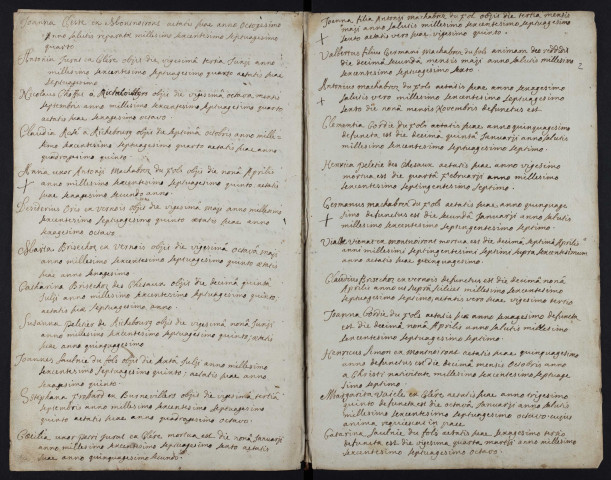 Joanna in Montnoirons aetatis suae anno Octogesimo
Anno salutis reparatae millesimo sexcentesimo septuagesimo
quarto
Antonia Jurot en Clere objit die vigesima tertia Junij anno
millesimo sexcentesimo septuagesimo quarto aetatis suae
septuagesimo
Nicolaus Choffat à Richebourg objit die vigesima octava mensis
septembris anno millesimo sexcentesimo septuagesimo quarto
aetatis suae anno sexagesimo
Claudia à Richebourg objit die septima octobris anno mille-
simo sexcentesimo septuagesimo quarto aetatis suae anno
quadragesimo quinto
Maria uxor Antonij Machabez du fols objit die nonâ Aprilis
anno millesimo sexcentesimo septuagesimo quinto, aetatis
suae sexagesimo secundo anno
en vernois objit die vigesima maij anno millesimo
sexcentesimo septuagesimo quinto aetatis suae anno
sexagesimo octavo
Maria Brischox en vernois objit die vigesima octavâ maij
anno millesimo sexcentesimo septuagesimo quinto aetatis
suae anno sexagesimo
Catharina Brischox des Chesaux objit die decimâ quintâ
Julij anno millesimo sexcentesimo septuagesimo quinto,
aetatis suae septuagesimo anno
Susanna peletier de Richebourg objit die vigesimâ nonâ Junij
anno millesimo sexcentesimo septuagesimo quinto, aetatis
suae anno quinquagesimo
Joannes saulnie du fols objit die sextâ Julij anno millesimo
sexcentesimo septuagesimo quinto: aetatis suae anno
sexagesimo quinto
Stephana probart en Burnevillers objit die vigesima tertiâ
septembris anno millesimo sexcentesimo septuagesimo
quinto aetatis suae anno quadragesimo octavo
Caecilia uxor petri Jurot en Clere mortua est die nonâ Januarij
anno millesimo sexcentesimo septuagesimo sexto aetatis
suae anno quinquagesimo secundo
2
Joanna filia Antonij machabez du fol objit die tertia mensis
maij anno salutis millesimo sexcentesimo septuagesimo
sexto aetatis vero suae vigesimo quinto
Valbertus filius Germani machabez du fols animam deo reddidit
die decimâ secundâ mensis maij anno salutis millesimo
sexcentesimo septuagesimo sexto
Antonius machabez du fols aetatis suae anno sexagesimo
salutis vero millesimo sexcentesimo septuagesimo
sexto die nonâ mensis Novembris defunctus est
Clementia Cordie du fols aetatis suae anno quinquagesimo
defuncta est die decimâ quintâ Januarij anno salutis
millesimo sexcentesimo septuagesimo septimo
Henrica peletie des Chesaux aetatis suae anno vigesimo
mortua est die quartâ februarij anno millesimo
sexcentesimo septingentesimo septimo
Germanus machabez du fols aetatis suae anno quinquage
simo defunctus est die secundâ Januarij anno salutis
millesimo sexcentesimo septingentesimo septimo
en montnoirons mortua est die decimâ septimâ Aprilis
anni millesimi septingentesimi septimi supra sexcentesimum
aetatis suae quinquagesimo
Claudius Brischox en vernois defunctus est die decimâ nonâ
Aprilis anno ut supra scilicet millesimo sexcentesimo
septuagesimo septimo, aetatis vero suae vigesimo tertio
Joanna Cordie du fols aetatis suae anno sexagesimo defuncta
est die decimâ nonâ Aprilis anno salutis millesimo
sexcentesimo septuagesimo septimo
Henricus Simon ex Montnoirons aetatis suae quinquagesimo
anno defunctus est die decimâ mensis Octobris anno
a Christi nativitate millesimo sexcentesimo septuage
simo septimo
Margarita en Clere aetatis suae anno trigesimo
quinto defuncta est die octavâ Januarij anno salutis
millesimo sexcentesimo septuagesimo octavo cuius
anima requiescat in pace
Catarina saulnie du fols aetatis suae sexagesimo tertio
defuncta est die vigesima quarta martij anno millesimo
sexcentesimo septuagesimo octavo